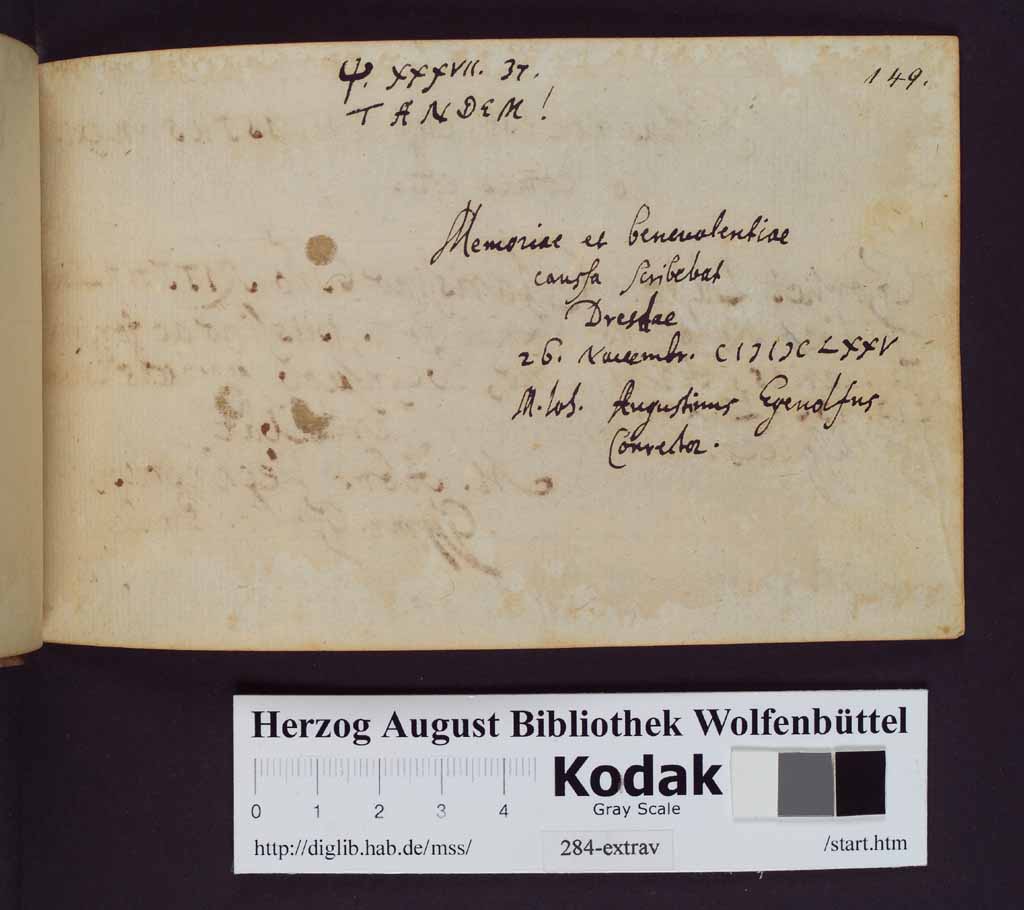 149.
Ψ. XXXVII. 37.
TANDEM!
Memoriae et benevolentiae
caussa scribebat
Dresdae
26. Novembr. CIↃIↃC LXXV
M. Joh. Augustinus Egenolfus
Conrector.
Herzog August Bibliothek Wolfenbüttel
0 1 2 3 4
Kodak
Gray Scale
http://diglib.hab.de/mss/ 284-extrav /start.htm